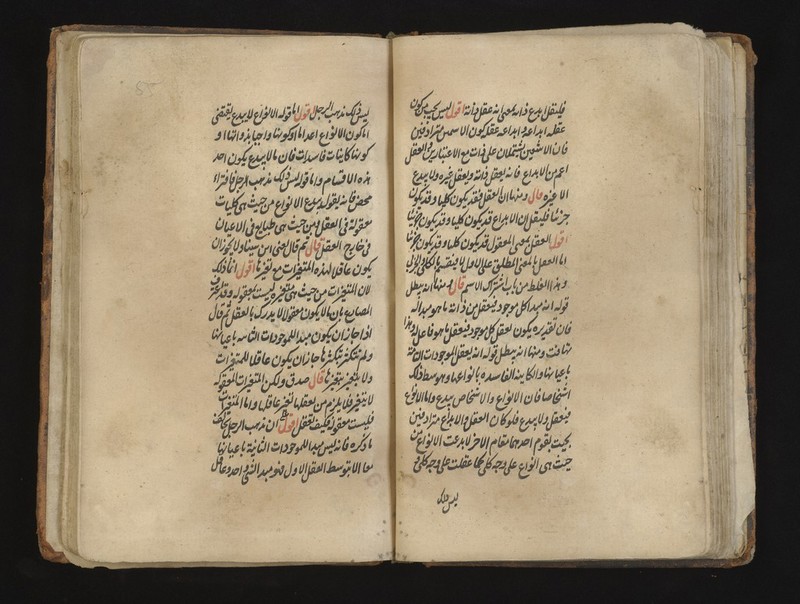 فليقل ابدع ذاته بمعنى انه عقل ذاته اقول ليس يجب من كون
عقله ابداعه وابداعه عقله كون الاسمين مترادفين
فان الاسمين يشتملان على ذات مع الاعتبارين والعقل
اعم من الابداع فانه يعقل ذاته ويعقل غيره ولا يبدع
الا غيره قال ومنها ان العقل قد يكون كليا وقد يكون
جزئيا فليقل ان الابداع قد يكون كليا وقد يكون جزئيا
اقول العقل بمعنى المعقول قد يكون كليا وقد يكون جزئيا
اما العقل بالمعنى المطلق على الاول فلا ينقسم بالكلي والجزئي
وهذا الغلط من باب اشتراك الاسم قال ومنها انه يبطل
قوله انه مبدا كل موجود فيعقل من ذاته ما هو مبدا له
فان تقديره يكون يعقل كل موجود فيعقل ما هو فاعل له وهذا
تهافت ومنها انه يبطل قوله انه يعقل الموجودات التامة
باعيانها والكاينة الفاسدة بانواعها وبتوسط ذلك
اشخاصها فان الانواع والاشخاص يبدع واما الانواع
فيعقل ولا يبدع فلو كان العقل والابداع مترادفين
بحيث يقوم احدهما مقام الاخر لابدعت الانواع من
حيث هي انواع على وجه كلي كما عقلت على وجه كلي و
ليس ذلك
ليس ذلك مذهب الرجل اقول اما قوله الانواع لا يبدع يقتضي
اما كون الانواع اعداما او كونها واجبا بذواتها او
كونها كاينات فاسدات فان ما لا يبدع يكون احد
هذه الاقسام واما قوله ليس ذلك مذهب الرجل فافتراء
محض فانه يقول يبدع الانواع من حيث هي كليات
معقولة في العقل ومن حيث هي طبايع في الاعيان
في خارج العقل قال ثم قال اعني ابن سينا ولا يجوز ان
يكون عاقلا لهذه المتغيرات مع تغيرها اقول انما ذلك
لان المتغيرات من حيث هي متغيره ليست بمعقولة وقد اعترف
المصارع بان ما لا يكون معقولا لا يدرك بالعقل ثم قال
اذا جاز ان يكون مبدا للموجودات التامة باعيانها
ولم يتكثر بتكثرها جاز ان يكون عاقلا للمتغيرات
ولا يتغير بتغيرها قال صدق ولكن المتغيرات المعقولة
لا يتغير فلا يلزم من تعقلها تغير عاقلها واما المتغيرات
فليست معقولة فكيف تعقل اقول ان مذهب الرجل بخلاف
ما ذكره فانه ليس مبدا للموجودات الثانية باعيانها
معا الا بتوسط العقل الاول فهو مبدا لشي واحد وعاقل